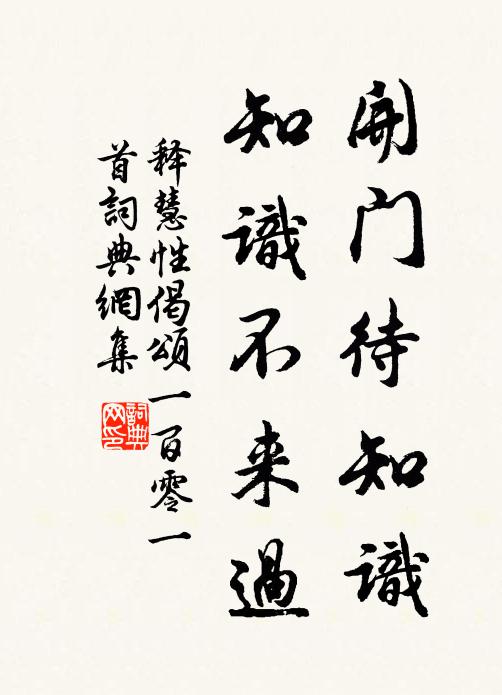 開门待知識
知識不来過
释慧性偈頌一百零一
首詞典網集
詞典
网印